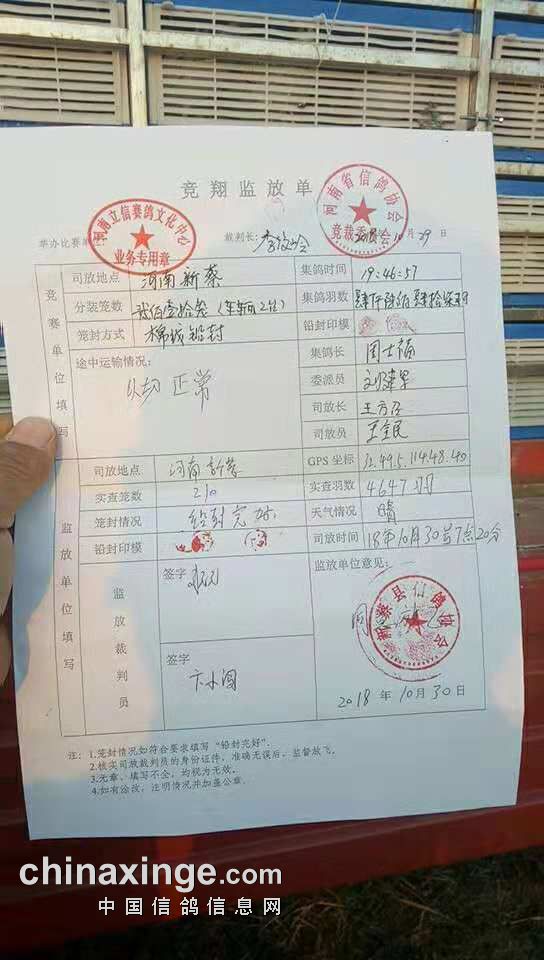 竞翔监放单
河南立信赛鸽文化中心
业务专用章
河南省信鸽协会
竞裁委
举办比赛单 裁判长: 2018年10月29日
竞赛单位填写
司放地点 河南新蔡 集鸽时间 19:46:57
分装笼数 贰佰壹拾笼 集鸽羽数 肆仟陆佰肆拾柒羽
笼封方式 棉线铅封 铅封印模
途中运输情况: 集鸽长
一切正常 委派员 刘建军
司放长 王方召
司放员 王全民
监放单位填写
司放地点 河南新蔡 GPS坐标 32.49.5.114.48.40
实查笼数 210 实查羽数 4647羽
笼封情况 铅封完好 天气情况 晴
铅封印模 司放时间 18年10月30号7点20分
监放裁判员 签字 监放单位意见:
新蔡县信鸽协会
签字
卞小围
2018年10月30日
注: 1.笼封情况如符合要求填写“铅封完好”.
2.核实司放裁判员的身份证件, 准确无误后, 监督放飞.
3.无章、填写不全, 均视为无效.
4.如有涂改, 注明情况并加盖公章.
chinaxinge.com
中国信鸽信息网